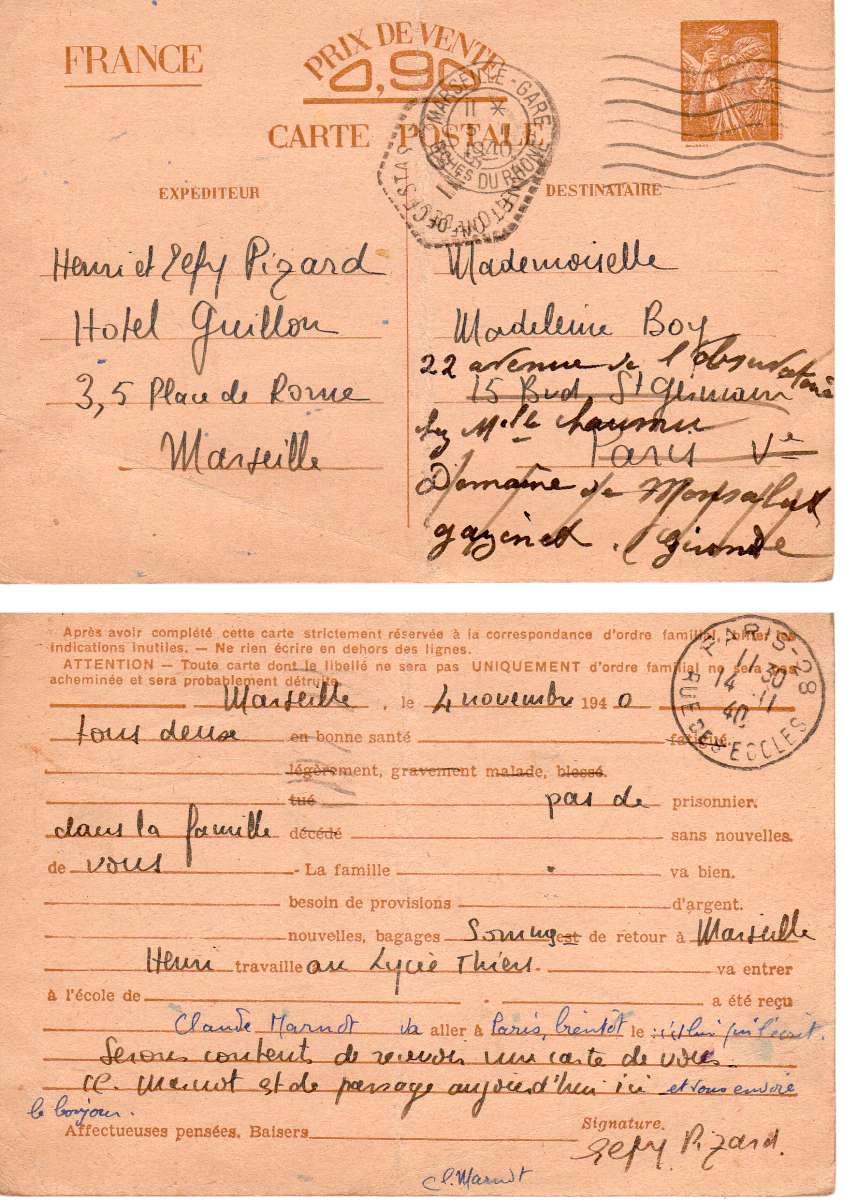 FRANCE
PRIX DE VENTE
0,90
CARTE POSTALE
MARSEILLE-GARE
BCHES DU RHÔNE
1940
EXPÉDITEUR
DESTINATAIRE
Henri et Zefy Pizard
Hotel Guillon
3,5 Place de Rome
Marseille
Mademoiselle
Madeleine Boy
22 avenue de l'observatoire
15 Bvd St Germain
chez Melle
Paris Ve
Domaine de
gazinet. Gironde
Après avoir complété cette carte strictement réservée à la correspondance d'ordre familial, biffer les
indications inutiles. — Ne rien écrire en dehors des lignes.
ATTENTION — Toute carte dont le libellé ne sera pas UNIQUEMENT d'ordre familial ne sera pas
acheminée et sera probablement détruite.
PARIS-28
11 30
14 11
40
RUE DES ECOLES
Marseille, le 4 novembre 1940
tous deux en bonne santé fatigué.
légèrement, gravement malade, blessé.
tué pas de prisonnier.
dans la famille décédé sans nouvelles.
de vous - La famille va bien.
besoin de provisions d'argent.
nouvelles, bagages Sommes est de retour à Marseille
Henri travaille au Lycée Thiers. va entrer
à l'école de a été reçu
Claude Marnot va aller à Paris, bientôt le : c'est lui qui écrit.
Serons contents de recevoir une carte de vous.
Cl. Marnot est de passage aujourd'hui ici et vous envoie
le bonjour.
Affectueuses pensées. Baisers
Signature.
Zefy Pizard.
Cl. Marnot